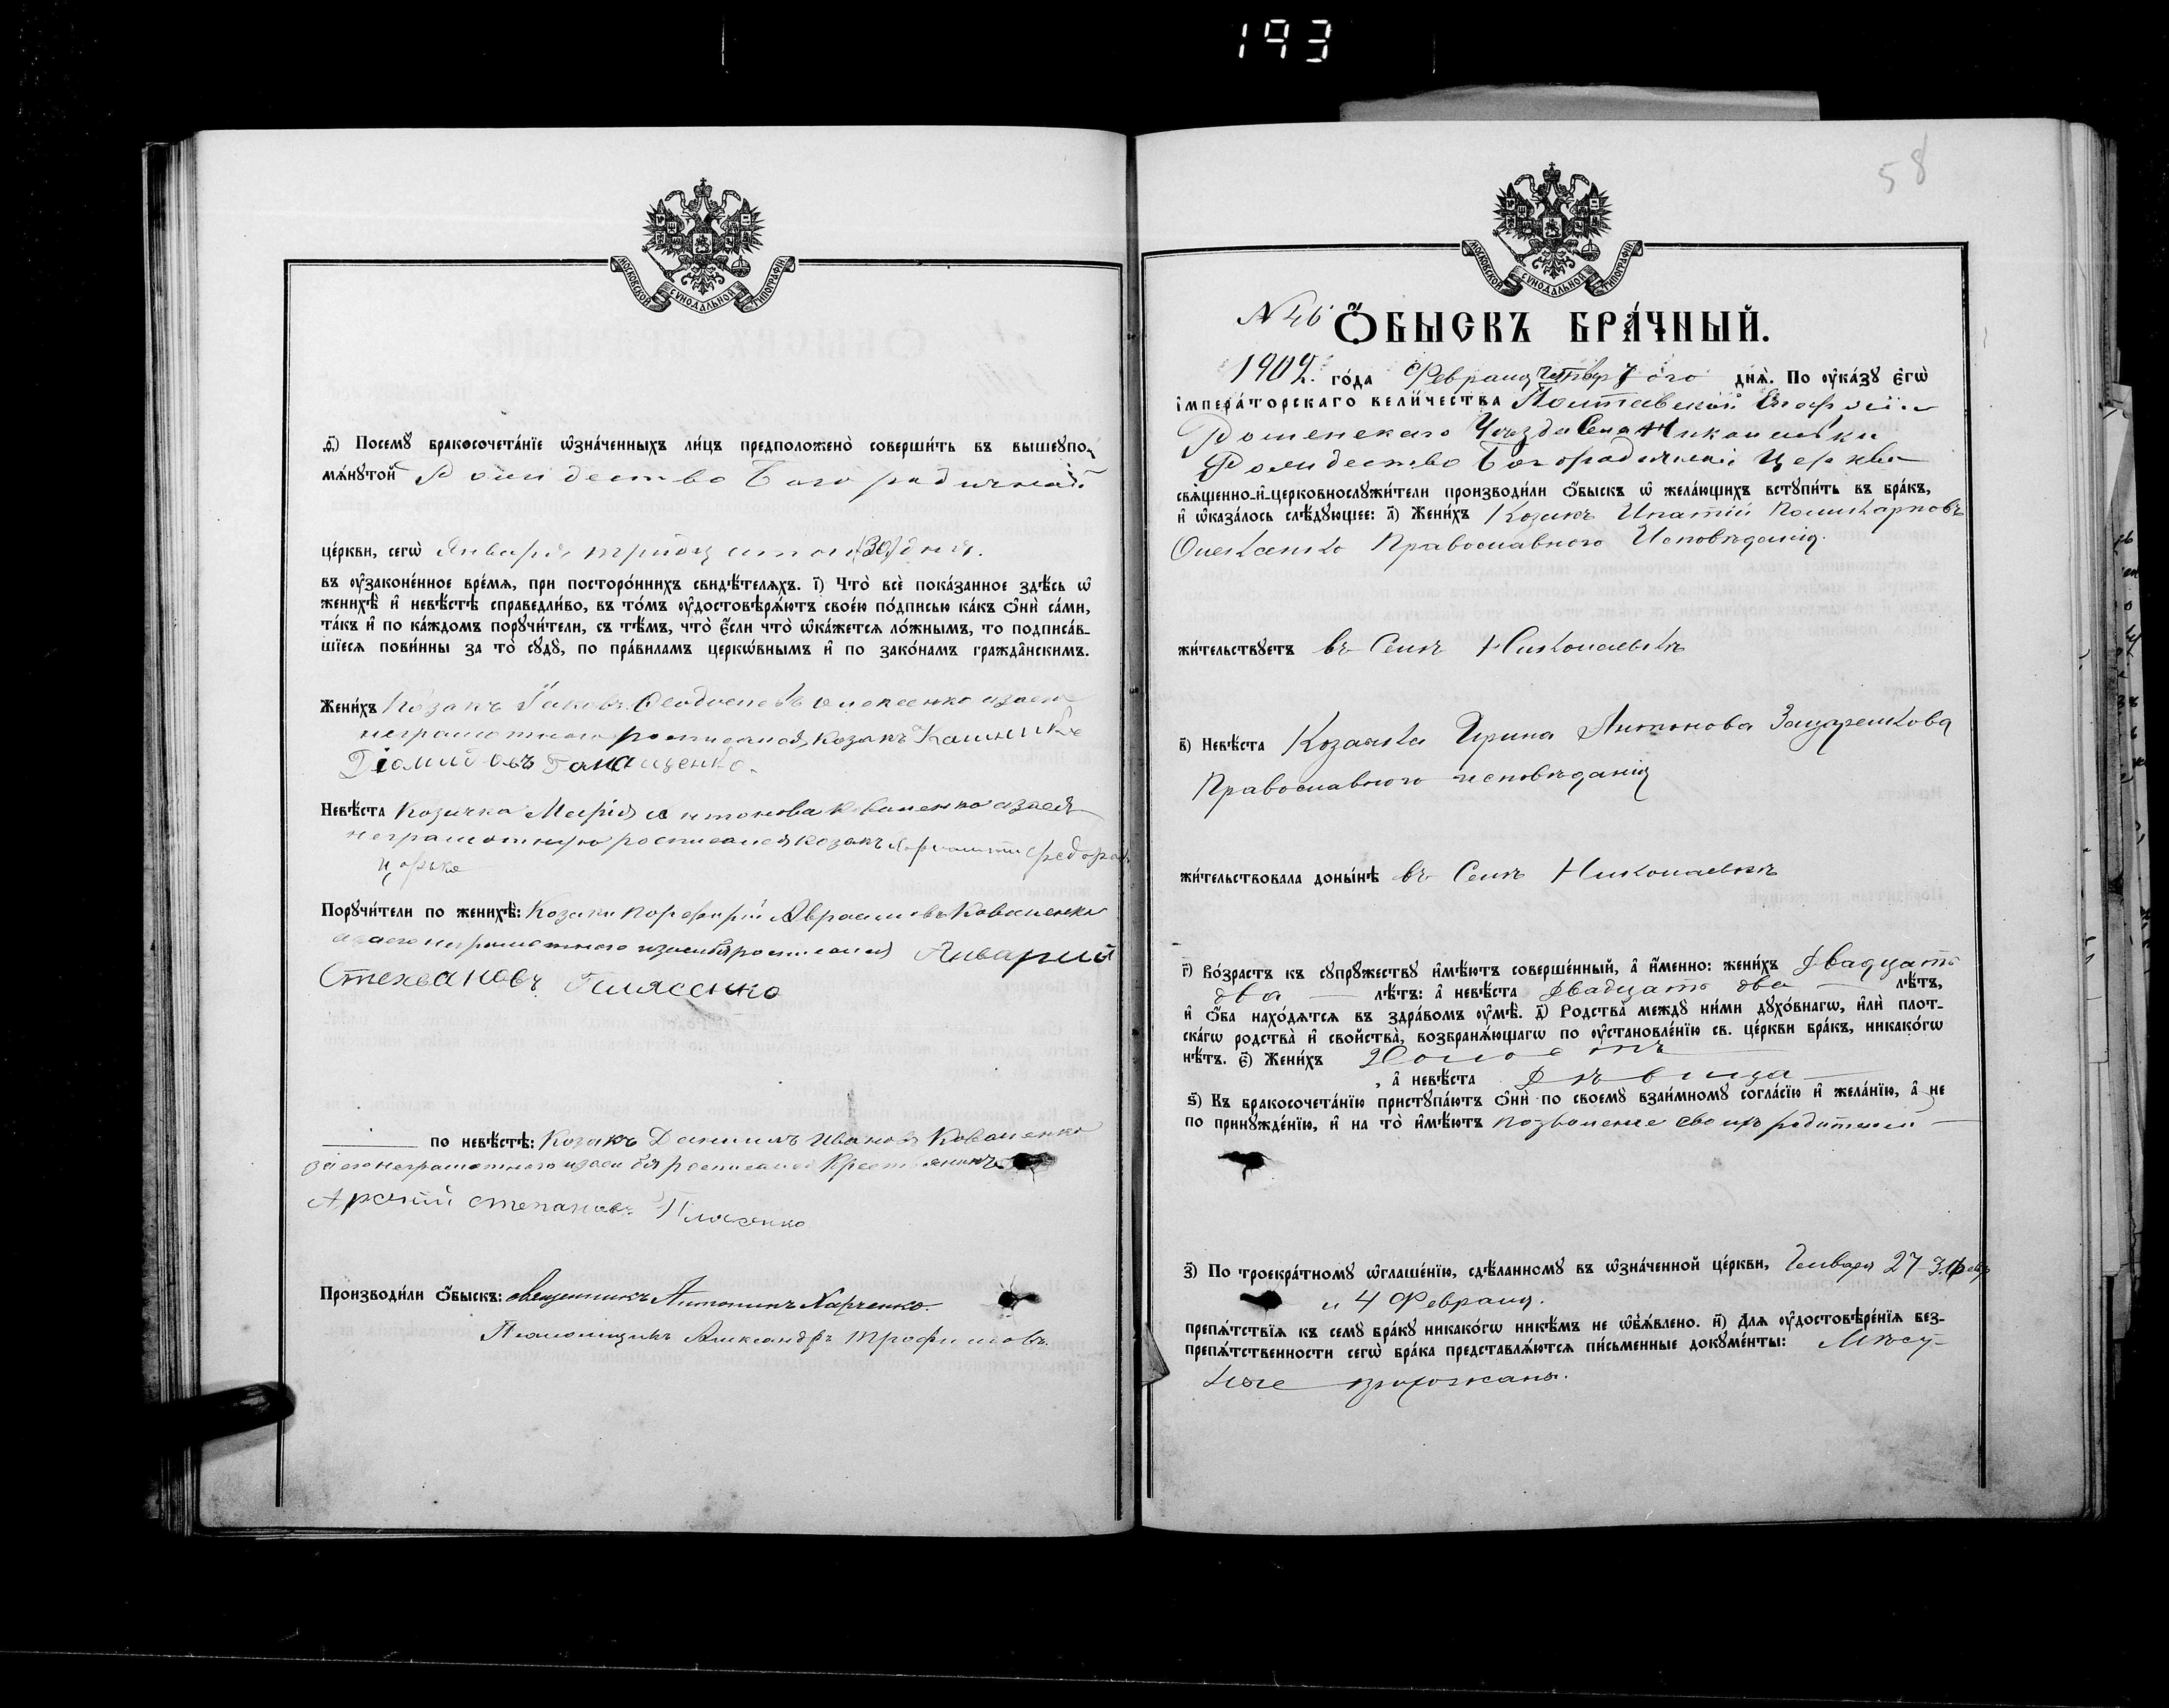 193
МОСКОВСКОЙ СѴНОДАЛЬНОЙ ТИПОГРАФІИ
д҃) Посемꙋ̀ бракосочета́нїе ѡ҆зна́ченныхъ ли́цъ предположено̀ соверши́ть въ вышеꙋпо-
мѧ́нꙋтой Рождество Богородичной
це́ркви, сегѡ̀ Января тридцатаго (30) дня.
въ ᲂу҆зако́ненное вре́мѧ, при посторо́ннихъ свидѣ́телѧхъ. і҃) Что̀ всѐ пока́занное здѣ́сь ѡ҆
женихѣ̀ и҆ невѣ́стѣ справедли́во, въ то́мъ ᲂу҆достовѣрѧ́ютъ свое́ю по́дписью ка́къ ѻ҆нѝ са́ми,
та́къ и҆ по ка́ждомъ порꙋчи́тели, съ тѣ́мъ, что̀ є҆́сли что̀ ѡ҆ка́жетсѧ ло́жнымъ, то подписа́в-
шїесѧ пови́нны за то̀ сꙋдꙋ̀, по пра́виламъ церко́внымъ и҆ по зако́намъ гражда́нскимъ.
Жени́хъ Козакъ Іаковъ Ѳеодосіевъ
неграмотнаго росписался козакъ
Діомидовъ
Невѣ́ста Козачка Марія Антонова Коваленко а за ея
неграмотную росписался козакъ
Порꙋчи́тели по женихѣ̀: Козакъ Порфирій Авраамовъ Коваленко
а за его неграмотного и за себя росписался Январий
Стехвановъ Плясенко
по невѣ́стѣ: Козакъ Даниилъ Ивановъ Коваленко
за его неграмотного и за себя росписался Крестьянинъ
степановъ
Производи́ли ѻ҆́быскъ: священникъ Антонинъ Харченко.
Псаломщикъ Александръ Трофимовъ.
58
МОСКОВСКОЙ СѴНОДАЛЬНОЙ ТИПОГРАФІИ
N 46 Ѻ҆́БЫСКЪ БРА́ЧНЫЙ.
1902. го́да Февраля четверт ого днѧ̀. По ᲂу҆ка́зꙋ є҆гѡ̀
і҆мпера́торскагѡ вели́чества Полтавской Епархіи
Роменскаго Уѣзда Села Николаевки
Рождество Богородичной Церкви
свѧще́нно-и҆-церковнослꙋжи́тели производи́ли ѻ҆́быскъ ѡ҆ жела́ющихъ встꙋпи́ть въ бра́къ,
и҆ ѡ҆каза́лось слѣ́дꙋющее: а҃) Жени́хъ Козакъ Ипатій Поликарповъ
Олексенко Православного Исповѣданія.
жи́тельствꙋетъ въ Селѣ Николаевкѣ
в҃) Невѣ́ста Козачка Ирина Антонова
Православного исповѣданія
жи́тельствовала доны́нѣ въ Селѣ Николаевкѣ
г҃) Во́зрастъ къ сꙋпрꙋ́жествꙋ и҆мѣ́ютъ соверше́нный, а҆ и҆́менно: жени́хъ двадцать
два лѣ́тъ: а҆ невѣ́ста двадцать два лѣ́тъ,
и҆ ѻ҆́ба нахо́дѧтсѧ въ здра́вомъ ᲂу҆мѣ̀. д҃) Родства̀ междꙋ̀ ни́ми дꙋхо́внагѡ, и҆лѝ плот-
ска́гѡ родства̀ и҆ сво́йства̀, возбранѧ́ющагѡ по ᲂу҆становле́нїю св. це́ркви бра́къ, никако́гѡ
нѣ́тъ. є҃) Жени́хъ Холостъ
, а҆ невѣ́ста дѣвица
ѕ҃) Къ бракосочета́нїю пристꙋпа́ютъ ѻ҆нѝ по своемꙋ̀ взаи́мномꙋ согла́сїю и҆ жела́нїю, а҆ не
по принꙋжде́нїю, и҆ на то̀ и҆мѣ́ютъ позволеніе своихъ родителей
з҃) По троекра́тномꙋ ѡ҆глаше́нїю, сдѣ́ланномꙋ въ ѡ҆зна́ченной це́ркви, Генваря 27
и 4 Февраля.
препѧ́тствїѧ къ семꙋ̀ бра́кꙋ никако́гѡ никѣ́мъ не ѡ҆б̾ѧ́влено. и҃) Длѧ ᲂу҆достовѣре́нїѧ без-
препѧ́тственности сегѡ̀ бра́ка представлѧ́ютсѧ пи́сьменные докꙋме́нты: Мѣст-
ные прихожане.